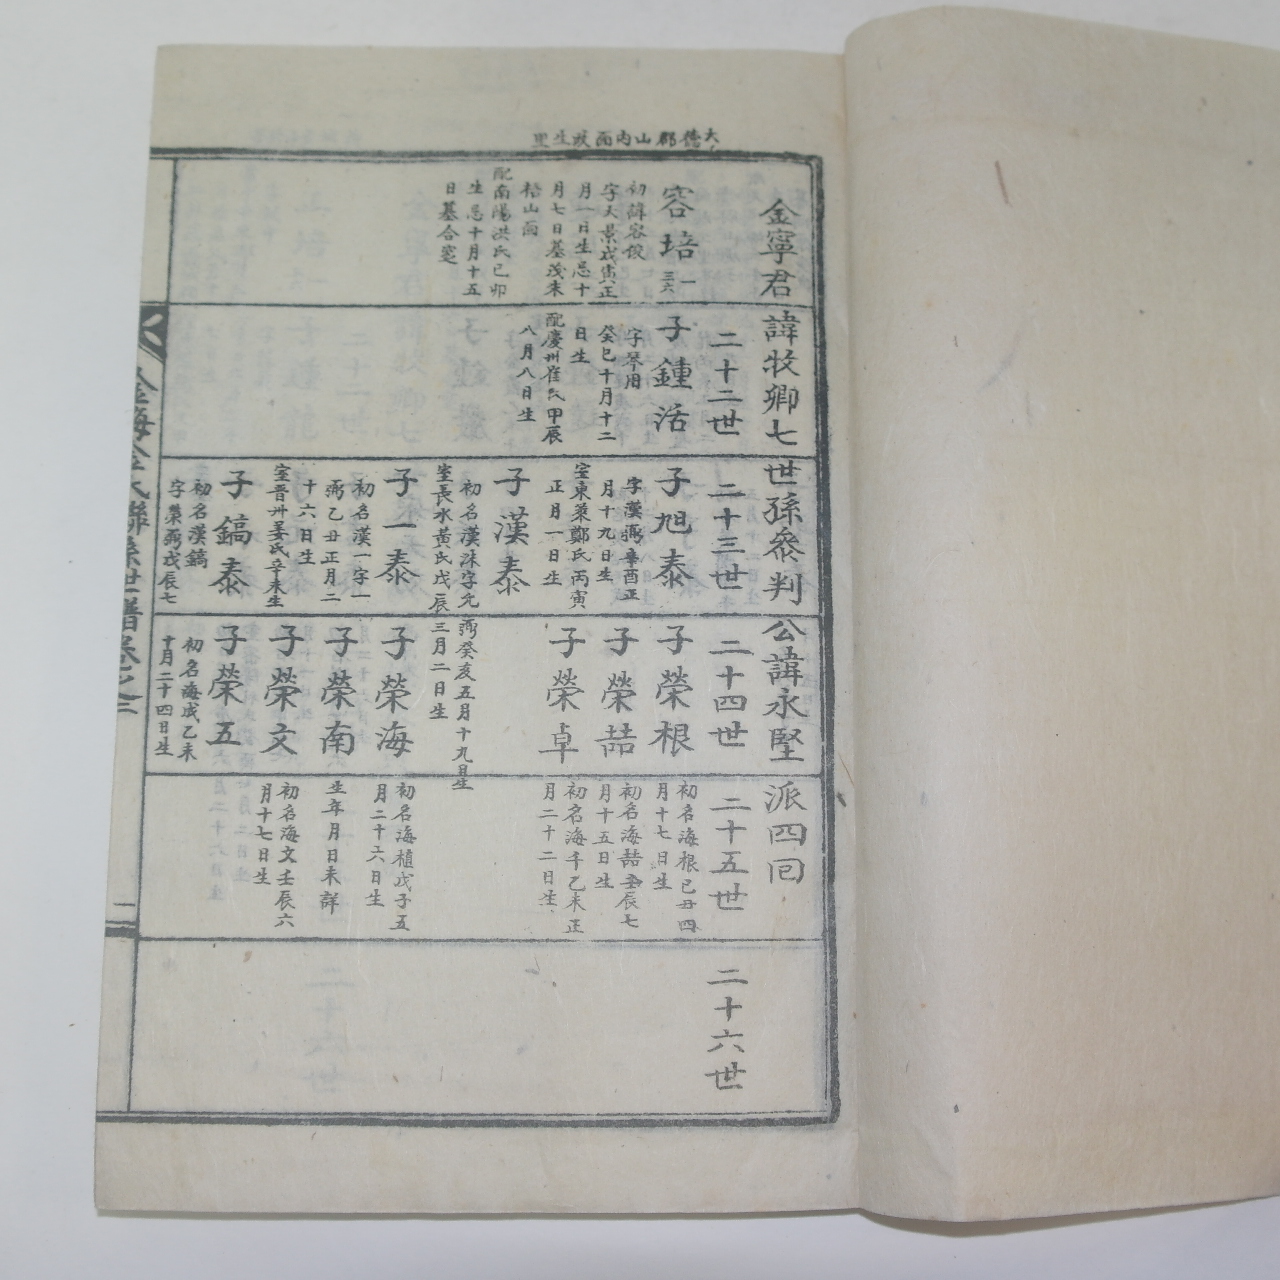 大德郡山內面政生里
金寧君諱牧卿七世孫參判公諱永堅派四回
容培
一
三六
初諱容俊
字天景戊寅正
月一日生忌十
月七日墓茂朱
梧山面
配南陽洪氏己卯
生忌十月十五
日墓合窆
二十二世
子鍾活
字琴用
癸巳十月十二
日生
配慶州崔氏甲辰
八月八日生
二十三世
子旭泰
字漢弼辛酉正
月十九日生
室東萊鄭氏丙寅
正月一日生
子漢泰
初名漢洙字允
弼癸亥五月十九日生
室長水黃氏戊辰
三月二日生
子一泰
初名漢一字一
弼乙丑正月二
十六日生
室晋州姜氏辛未生
子鎬泰
初名漢鎬
字榮弼戊辰七
二十四世
子榮根
子榮喆
子榮卓
子榮海
子榮南
子榮文
子榮五
初名海成乙未
十月二十四日生
二十五世
初名海根己丑四
月十七日生
初名海喆壬辰七
月十五日生
初名海千乙未正
月二十二日生
初名海植戊子五
月二十六日生
生年月日未詳
初名海文壬辰六
月十七日生
二十六世
金海金氏聯孫世譜卷之二
二